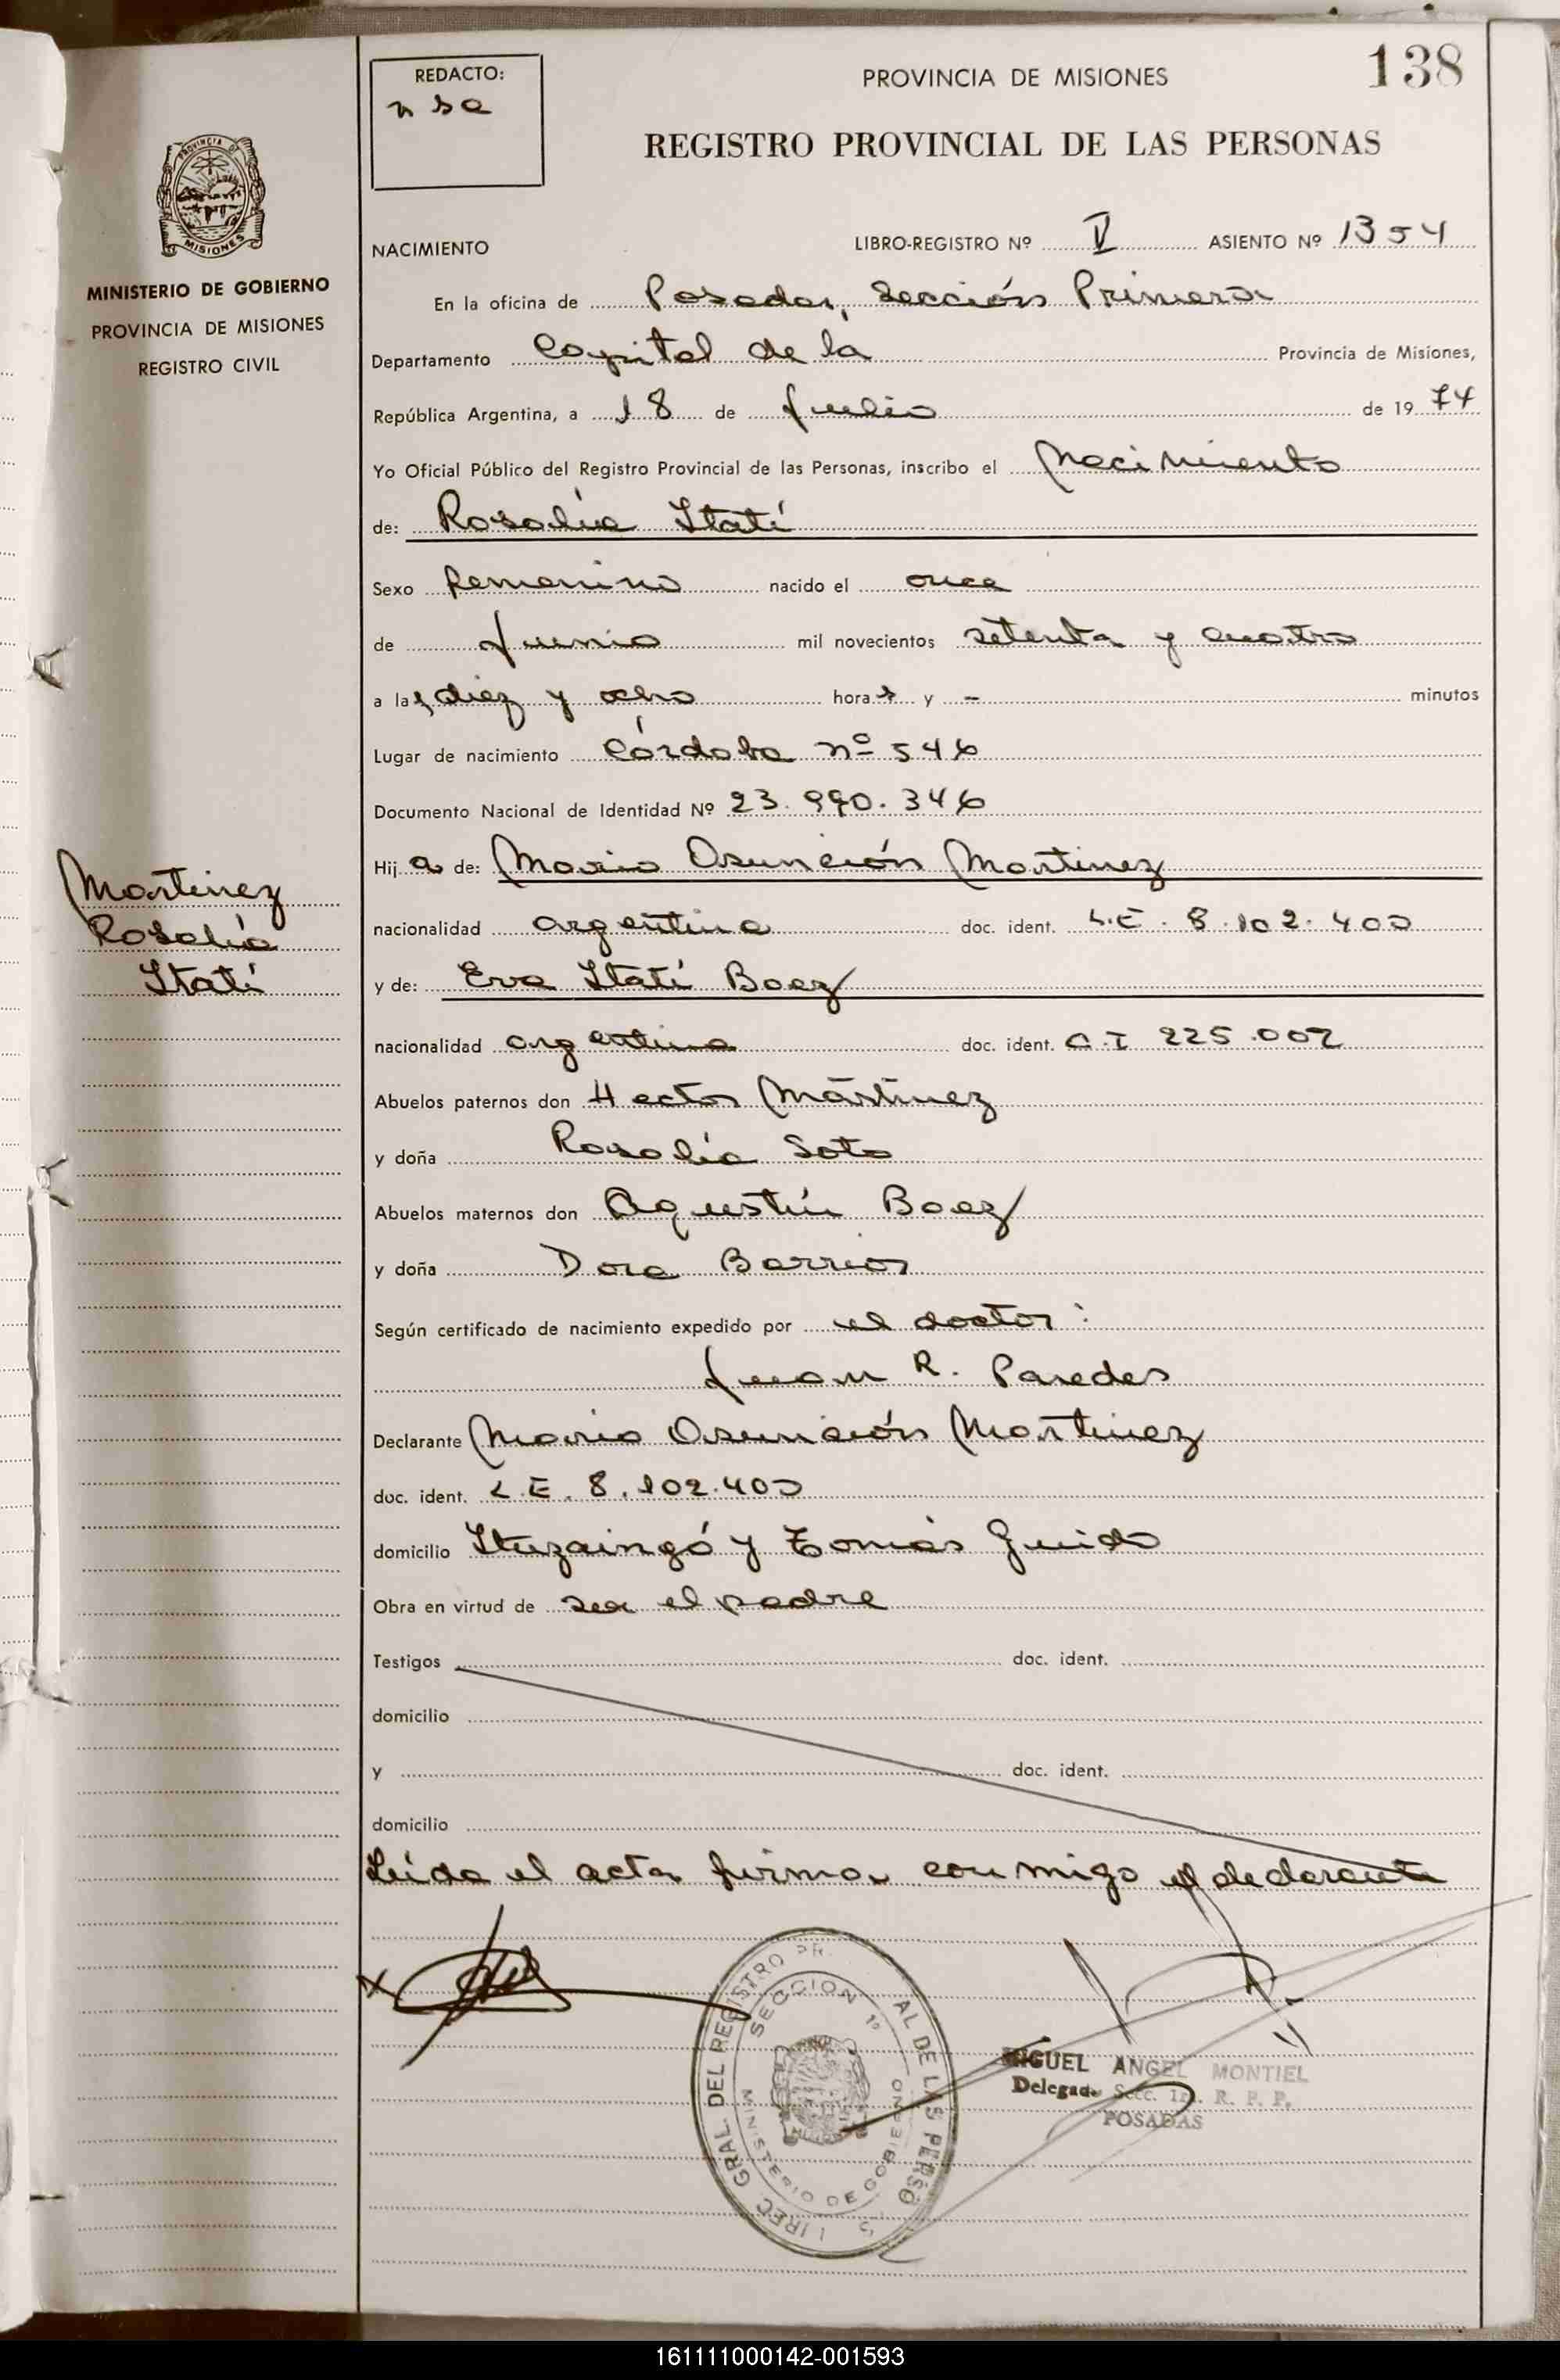 138
REDACTO:
n sa
PROVINCIA DE MISIONES
REGISTRO PROVINCIAL DE LAS PERSONAS
PROVINCIA DE
MISIONES
MINISTERIO DE GOBIERNO
PROVINCIA DE MISIONES
REGISTRO CIVIL
NACIMIENTO LIBRO-REGISTRO Nº V ASIENTO Nº 1354
En la oficina de Posadas, Sección Primera
Departamento Capital de la Provincia de Misiones,
República Argentina, a 18 de Julio de 1974
Yo Oficial Público del Registro Provincial de las Personas, inscribo el Nacimiento
de: Rosalía Itatí
Sexo femenino nacido el once
de Junio mil novecientos setenta y cuatro
a las diez y ocho horas y - minutos
Lugar de nacimiento Córdoba nº 546
Documento Nacional de Identidad Nº 23.990.346
Hija de: Mario Asunción Martinez
Martinez
Rosalía
Itatí
nacionalidad argentina doc. ident. L.E. 8.102.400
y de: Eva Itatí Baez
nacionalidad argentina doc. ident. C.I 225.007
Abuelos paternos don Hector Martinez
y doña Rosalía Soto
Abuelos maternos don Agustín Baez
y doña Dora Barrios
Según certificado de nacimiento expedido por el doctor:
Juan R. Paredes
Declarante Mario Asunción Martinez
doc. ident. L.E. 8.102.400
domicilio Ituzaingó y Tomás Guido
Obra en virtud de ser el padre
Testigos doc. ident.
domicilio
y doc. ident.
domicilio
Leída el acta, firma, conmigo el declarante
X
IREC GRAL. DEL REGISTRO PR AL DE LAS PERSO S
SECCION 1º
MINISTERIO DE GOBIERNO
MIGUEL ANGEL MONTIEL
Delegado Secc. 1a. R. P. P.
POSADAS
161111000142-001593